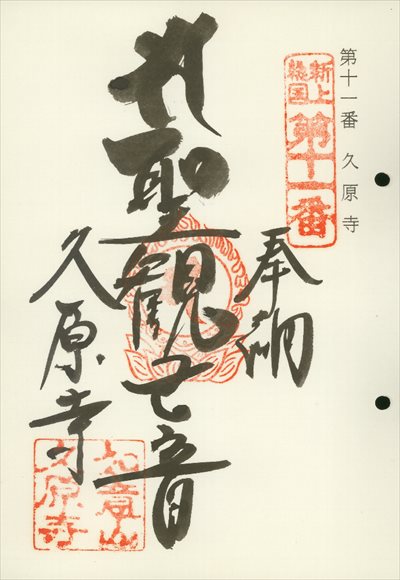 第十一番 久原寺
新上
総国
第十一番
奉納
聖観世音
久原寺
如意山
久原寺